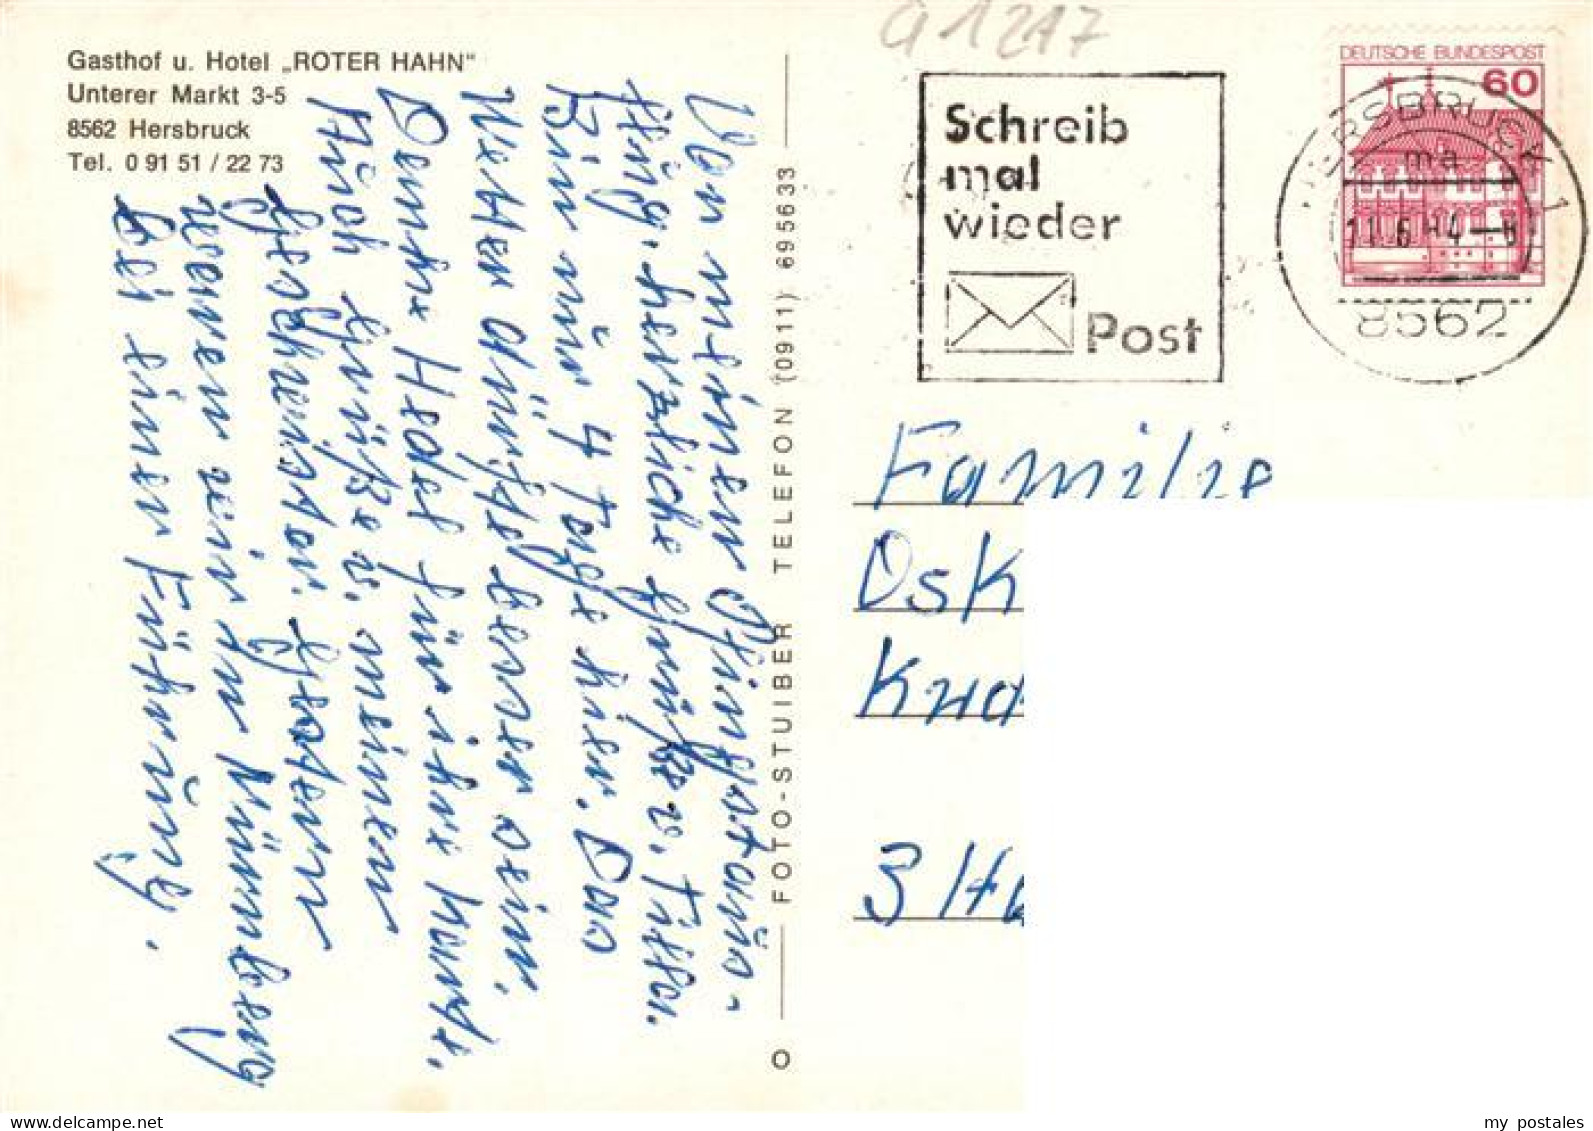 Gasthof u. Hotel „ROTER HAHN"
Unterer Markt 3-5
8562 Hersbruck
Tel. 0 91 51 / 22 73
Von meinem Pfingstaus-
flug, herzliche Grüße v. Tilla.
Bin nur 4 Tage hier. Das
Wetter dürfte besser sein.
Danke Hedel für ihre Karte.
Auch Grüße v. meinen
Geschwistern. Gestern
waren wir in Nürnberg
bei einer Führung.
FOTO-STUIBER TELEFON (0911) 695633
G 1217
Schreib
mal
wieder
Post
DEUTSCHE BUNDESPOST
60
HERSBRUCK 1
ma
8562
Familie
Osk
Kna
3
my postales